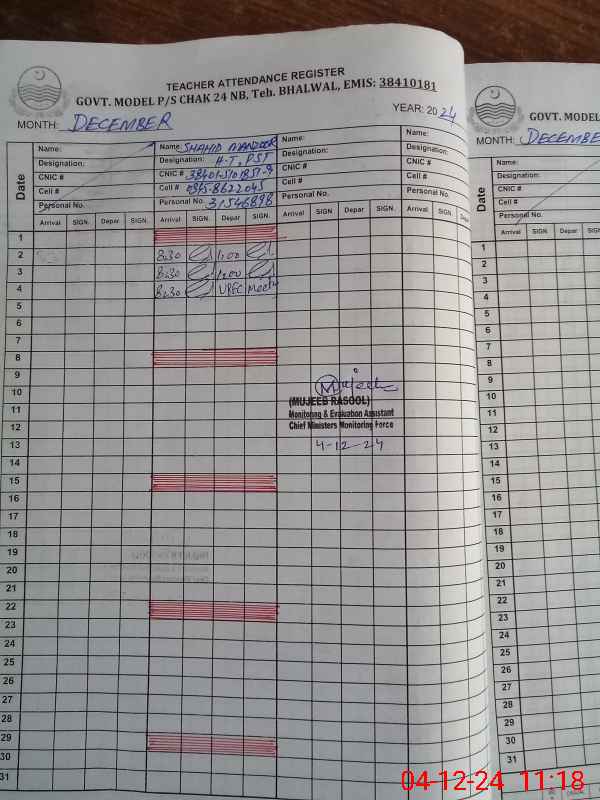 TEACHER ATTENDANCE REGISTER
GOVT. MODEL P/S CHAK 24 NB, Teh. BHALWAL, EMIS: 38410181
MONTH: DECEMBER YEAR: 2024
Date
Name: Name: SHAHID MANZOOR Name: Name:
Designation: Designation: H-T, PST Designation: Designation:
CNIC # CNIC # CNIC # CNIC #
Cell # Cell # 0345-8622045 Cell # Cell #
Personal No. Personal No. 31546898 Personal No. Personal No.
Arrival SIGN. Depar SIGN. Arrival SIGN. Depar SIGN. Arrival SIGN Depar SIGN. Arrival SIGN. Depar SIGN.
1
2 8:30 1:00
3 8:30 1:00
4 8:30
5
6
7
8
9
10 Mujeeb
11 (MUJEEB RASOOL)
12 Monitoring & Evaluation Assistant
Chief Ministers Monitoring Force
13 4-12-24
14
15
16
17
18
19
20
21
22
23
24
25
26
27
28
29
30
31
GOVT. MODEL
MONTH: DECEMBE
Date
Name:
Designation:
CNIC #
Cell #
Personal No.
Arrival SIGN. Depar SIGN
1
2
3
4
5
6
7
8
9
10
11
12
13
14
15
16
17
18
19
20
21
22
23
24
25
26
27
28
29
30
31
04-12-24 11:18